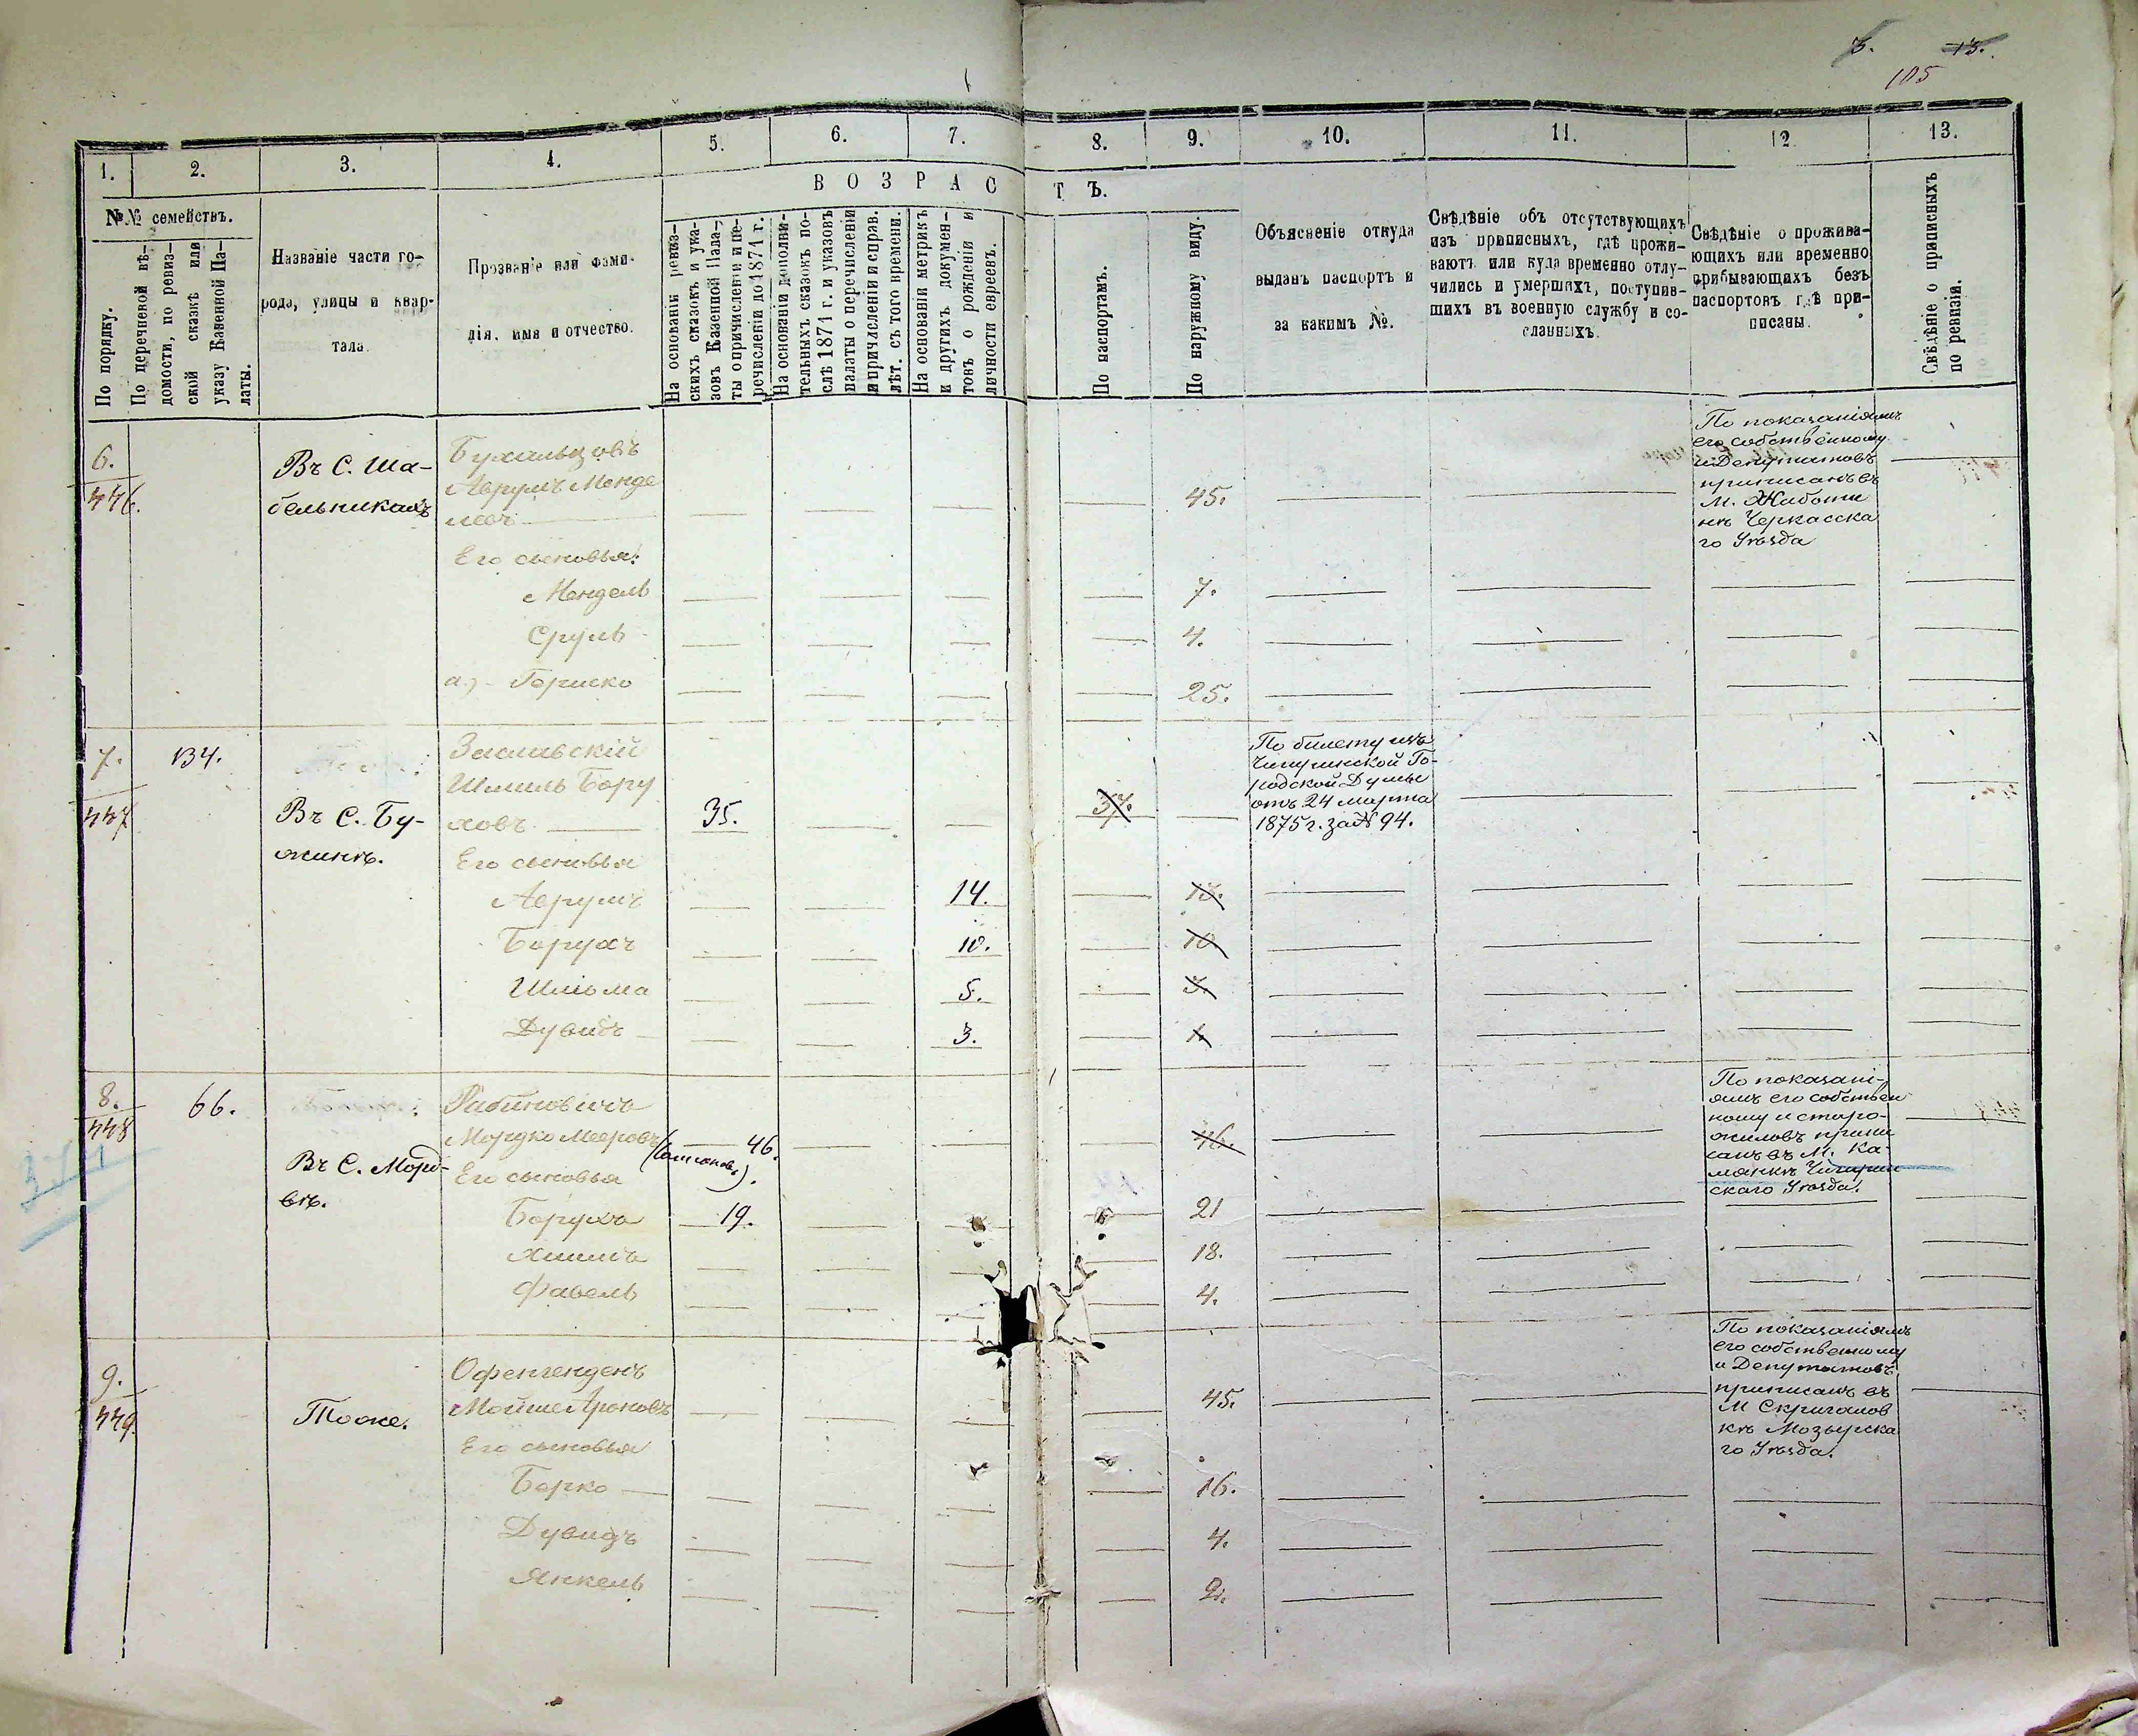 105
1. 2. 3. 4. 5. 6. 7. 8. 9. 10. 11. 12. 13.
В О З Р А С Т Ъ.
№№ семействъ.
По порядку.
По перечневой вѣ-
домости, по ревиз-
ской сказкѣ или
указу Казенной Па-
латы.
Названіе части го-
рода, улицы и квар-
тала.
Прозваніе или фами-
лія, имя и отчество.
На основаніи ревиз-
скихъ сказокъ и ука-
зовъ Казенной Пала-
ты о причисленіи и пе-
речисленіи до 1871 г.
На основаніи дополни-
тельныхъ сказокъ по-
слѣ 1871 г. и указовъ
палаты о перечисленіи
и причисленіи и справ.
лѣт. съ того времени.
На основаніи метрикъ
и другихъ докумен-
товъ о рожденіи и
личности евреевъ.
По паспортамъ.
По наружному виду.
Объясненіе откуда
выданъ паспортъ и
за какимъ №.
Свѣдѣніе объ отсутствующихъ
изъ приписныхъ, гдѣ прожи-
ваютъ или куда временно отлу-
чились и умершихъ, поступив-
шихъ въ военную службу и со-
сланныхъ.
Свѣдѣніе о прожива-
ющихъ или временно
прибывающихъ безъ
паспортовъ гдѣ при-
писаны.
Свѣдѣніе о приписныхъ
по ревизіи.
6.
446.
Въ С. Ша-
бельникахъ
Бухальцовъ
Аврумъ Менде
левъ
45.
По показаніямъ
его собственному
и Депутатовъ
приписанъ въ
М. Жаботи
нѣ Черкасска
го Уѣзда
Его сыновья:
Мендель 7.
Сруль 4.
а.) Гершко 25.
7.
447
134.
Въ С. Бу-
жинѣ.
Заславскій
Шмиль Бору
ховъ 35. 37.
По билету изъ
Чигиринской Го-
родской Думы
отъ 24 марта
1875 г. за № 94.
Его сыновья
Аврумъ 14. 13.
Борухъ 10. 10.
Шліома 5.
Дувидъ 3. 1.
8.
448
66.
Въ С. Морд-
вѣ.
Рабиновичъ
Мордко Мееровъ 46. 46.
По показані-
ямъ его собствен
ному и старо-
жиловъ припи
санъ въ М. Ка-
мянкѣ Чигирин
скаго Уѣзда.
Его сыновья
Борухъ 19. 21
Хаимъ 18.
Фавель 4.
9.
449.
Тоже.
Офенгенденъ
Мойше Ароновъ 45.
По показаніямъ
его собственному
и Депутатовъ
приписанъ въ
М Скригалов
кѣ Мозырска
го Уѣзда.
Его сыновья
Берко 16.
Дувидъ 4.
Янкель 2.